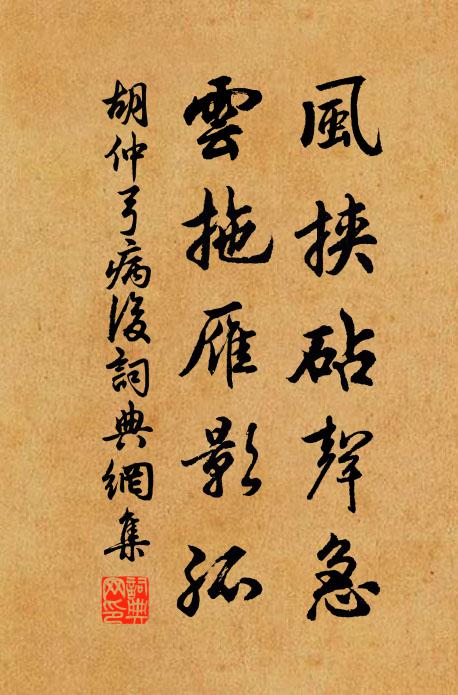 風挾砧聲急
雲拖雁影孤
胡仲弓病後詞典網集
詞典網印